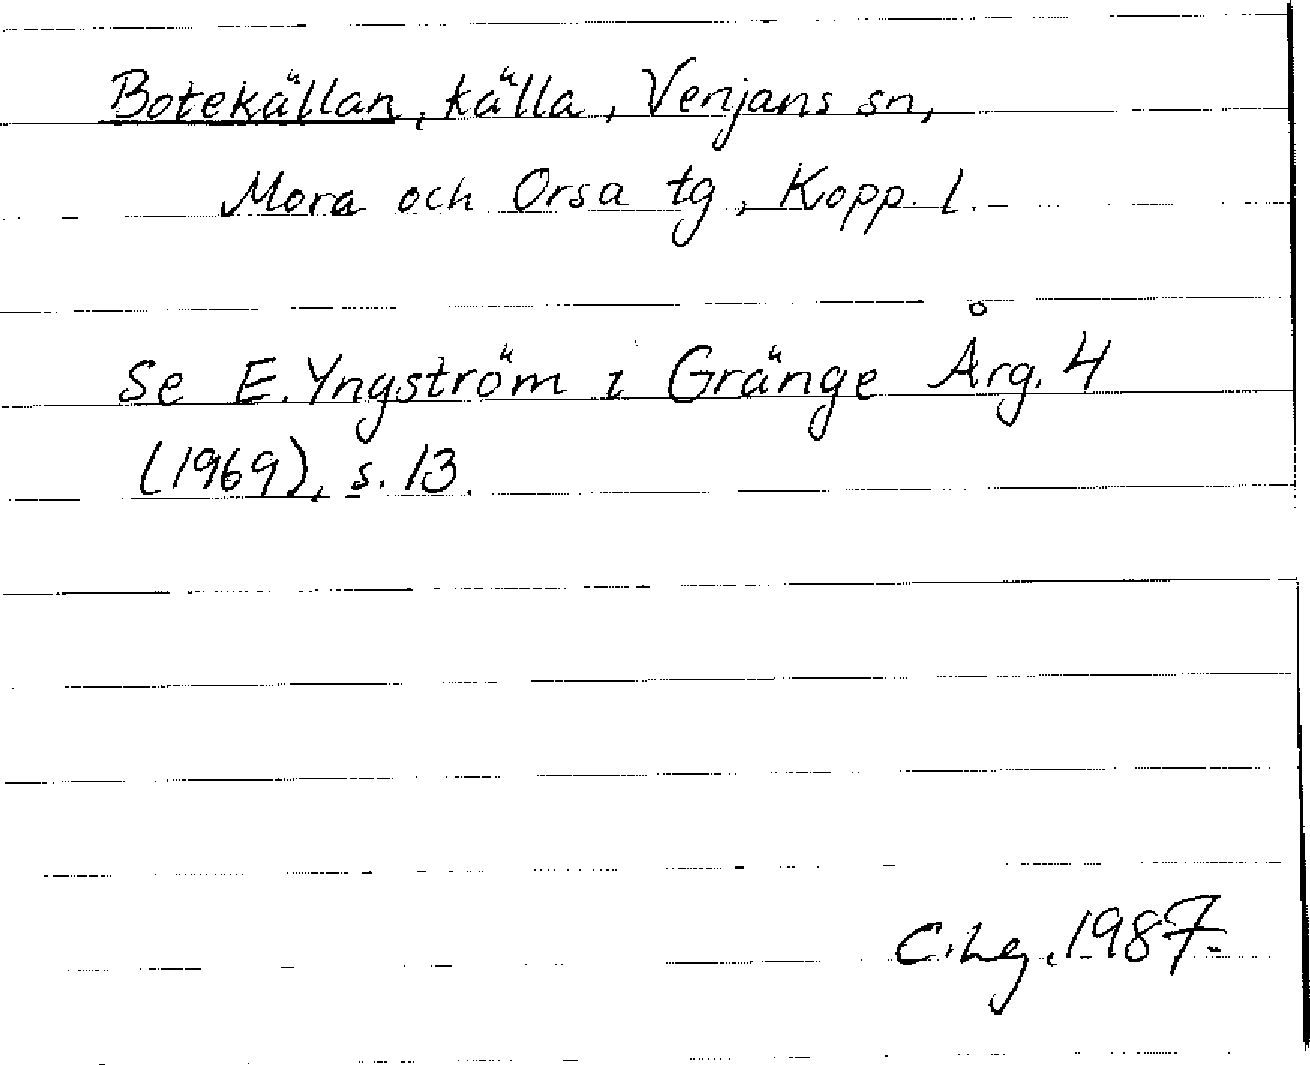 Botekällan, källa, Venjans sn,
Mora och Orsa tg, Kopp. l.
Se E. Yngström i Gränge Årg. 4
(1969), s. 13.
C. Lg. 1987